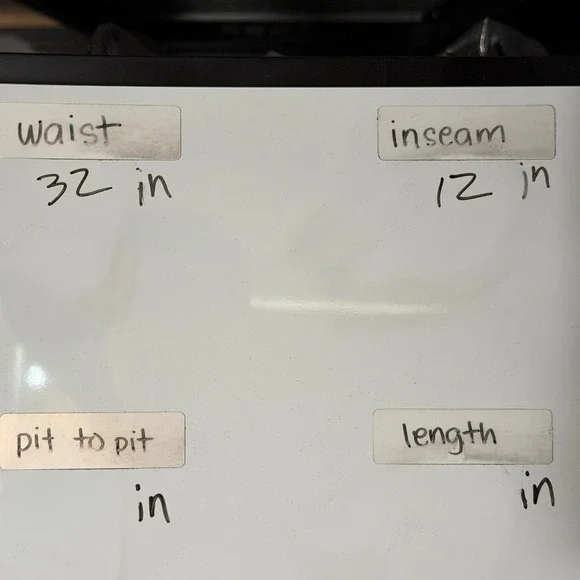 waist
inseam
32 in
12 in
pit to pit
length
in
in